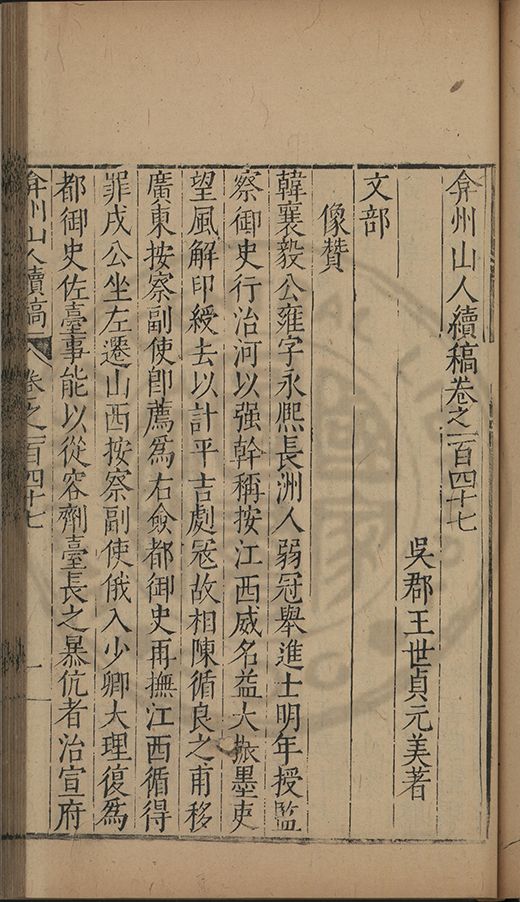 弇州山人續稿卷之一百四十七
吳郡王世貞元美著
文部
像贊
韓襄毅公雍字永熙長洲人弱冠舉進士明年授監
察御史行治河以强幹稱按江西威名益大振墨吏
望風解印綬去以計平吉劇冦故相陳循良之甫移
廣東按察副使即薦爲右僉都御史再撫江西循得
罪戍公坐左遷山西按察副使俄入少卿大理復爲
都御史佐臺事能以從容劑臺長之暴伉者治宣府
弇州山人續稿 卷之一百四十七 一